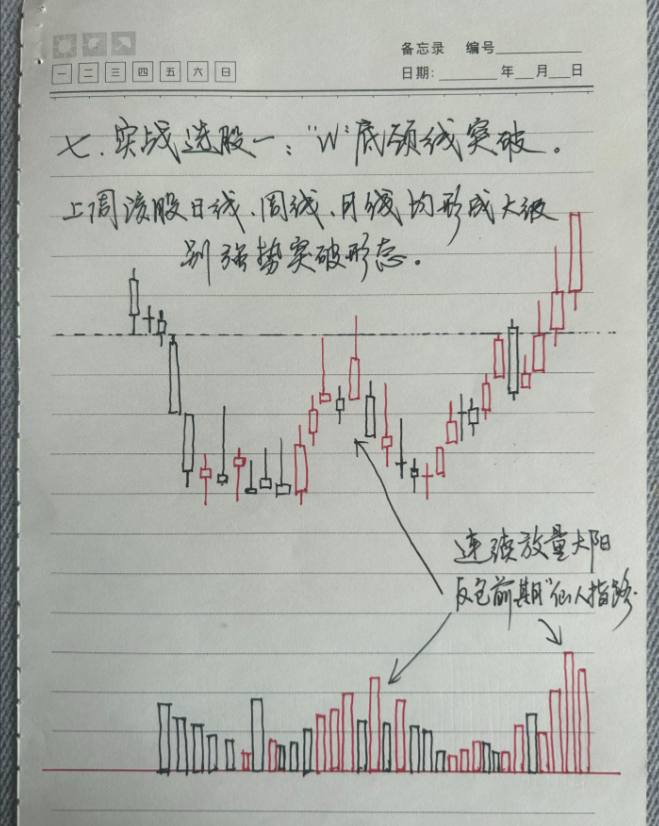 备忘录 编号
一 二 三 四 五 六 日
日期: 年 月 日
七. 实战选股一:"W"底颈线突破。
上周该股日线、周线、月线均形成大级
别强势突破形态。
连续放量大阳
反包前期"仙人指路.